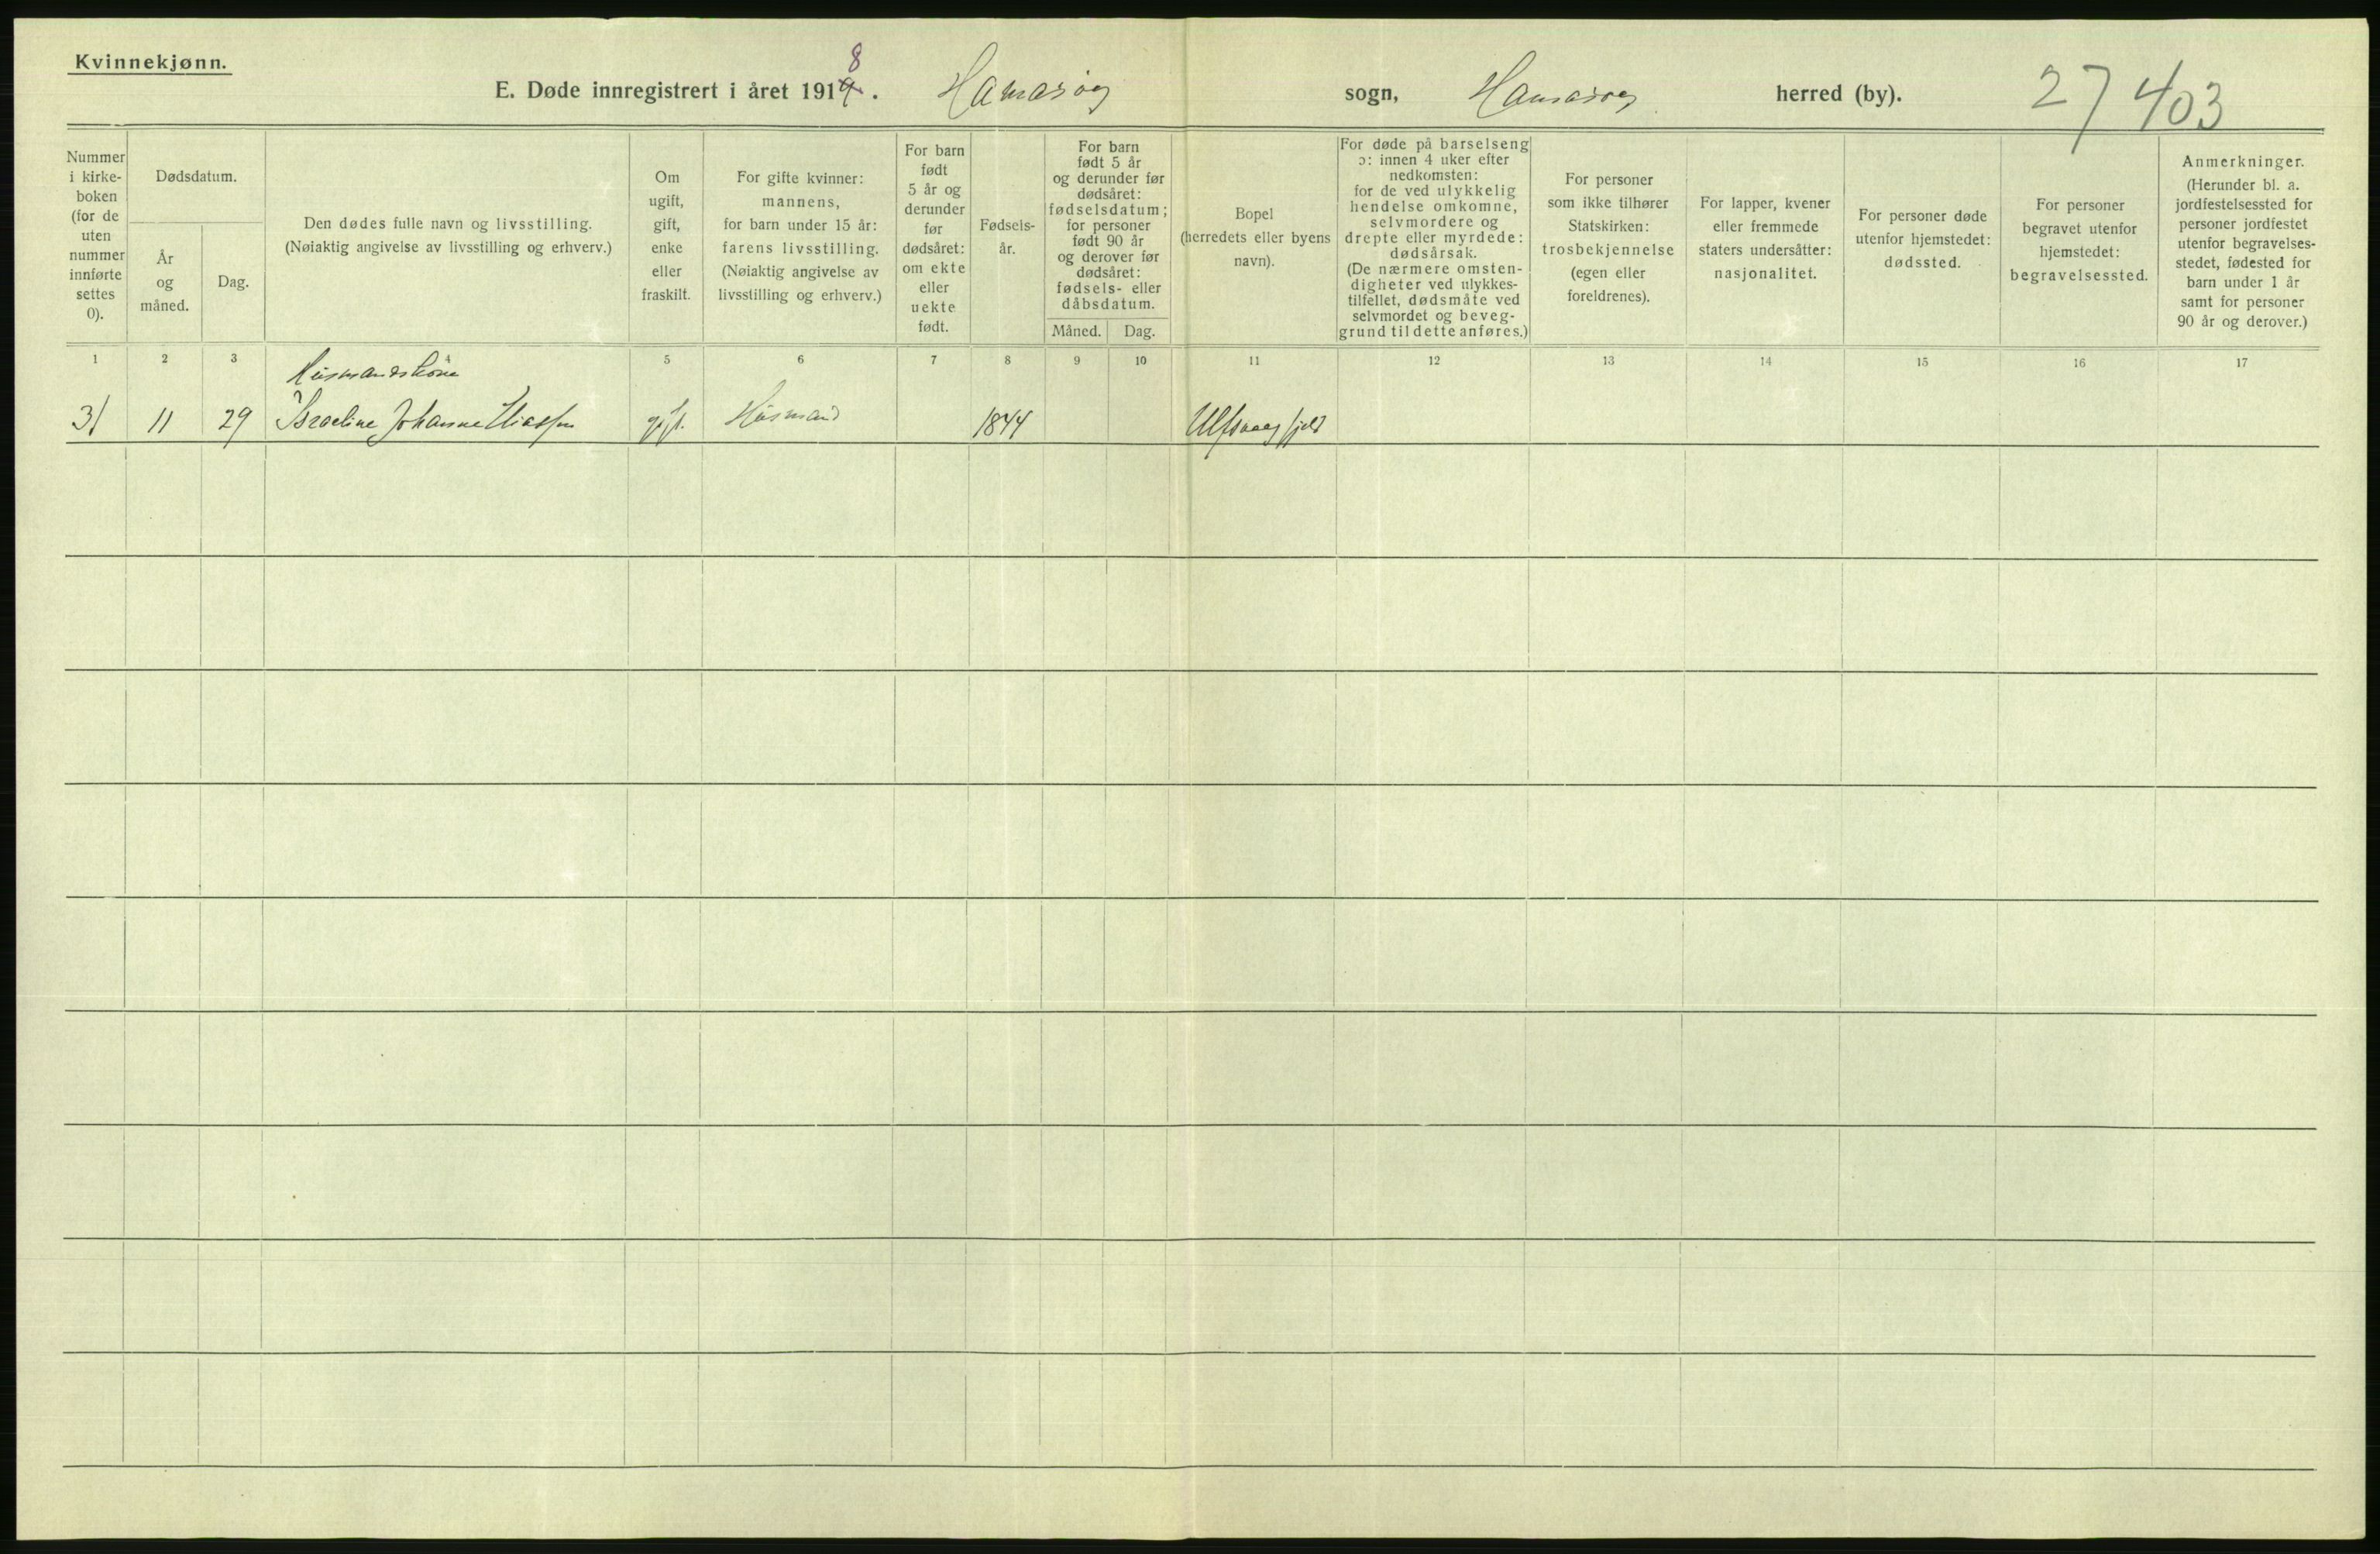 Kvinnekjønn.
E. Døde innregistrert i året 1918. Hamarøy sogn, Hamarøy herred (by). 27 403
Nummer
i kirke-
boken
(for de
uten
nummer
innførte
settes
0).
Dødsdatum.
År
og
måned.
Dag.
Den dødes fulle navn og livsstilling.
(Nøiaktig angivelse av livsstilling og erhverv.)
Om
ugift,
gift,
enke
eller
fraskilt.
For gifte kvinner:
mannens,
for barn under 15 år:
farens livsstilling.
(Nøiaktig angivelse av
livsstilling og erhverv.)
For barn
født
5 år og
derunder
før
dødsåret:
om ekte
eller
uekte
født.
Fødsels-
år.
For barn
født 5 år
og derunder før
dødsåret:
fødselsdatum;
for personer
født 90 år
og derover før
dødsåret:
fødsels- eller
dåbsdatum.
Måned. Dag.
Bopel
(herredets eller byens
navn).
For døde på barselseng
ɔ: innen 4 uker efter
nedkomsten:
for de ved ulykkelig
hendelse omkomne,
selvmordere og
drepte eller myrdede:
dødsårsak.
(De nærmere omsten-
digheter ved ulykkes-
tilfellet, dødsmåte ved
selvmordet og beveg-
grund til dette anføres.)
For personer
som ikke tilhører
Statskirken:
trosbekjennelse
(egen eller
foreldrenes).
For lapper, kvener
eller fremmede
staters undersåtter:
nasjonalitet.
For personer døde
utenfor hjemstedet:
dødssted.
For personer
begravet utenfor
hjemstedet:
begravelsessted.
Anmerkninger.
(Herunder bl. a.
jordfestelsessted for
personer jordfestet
utenfor begravelses-
stedet, fødested for
barn under 1 år
samt for personer
90 år og derover.)
1 2 3 4 5 6 7 8 9 10 11 12 13 14 15 16 17
Husmandskone
31 11 29 Israeline Johanne Eliassen gift. Husmand 1844 Ulfsvaag fjeld